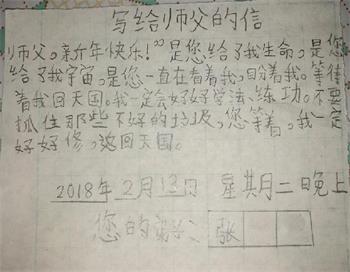 写给师父的信
师父。新年快乐！”是您给了我生命，是您
给了我宇宙，是您一直在看着我。盼着我。等待
着我回天国。我一定会好好学法、练功。不要
抓住那些不好的垃圾，您等着，我一定
好好修，返回天国。
2018年2月13日 星其月二晚上
您的弟子：张